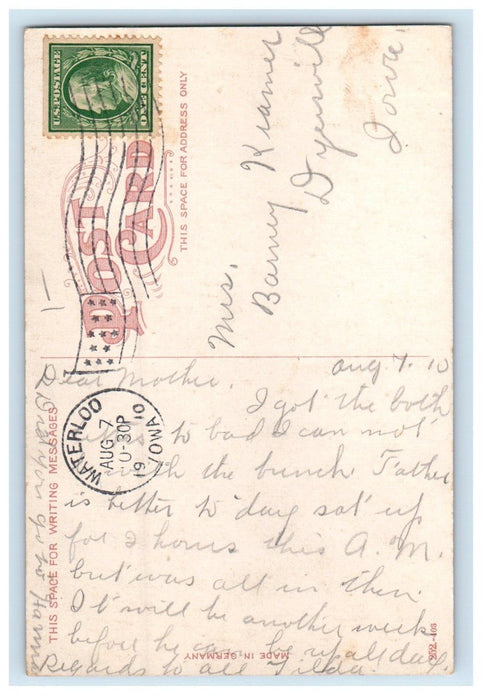 U.S. POSTAGE
ONE CENT
POST CARD
THIS SPACE FOR ADDRESS ONLY
Mrs.
Barney Kramer
Dyersville
Iowa.
WATERLOO
AUG 7
0-30P
1910
IOWA
THIS SPACE FOR WRITING MESSAGES
Aug 7. 10
Dear Mother.
I got the both
to bad I can not
the bunch. Father
is better to day sat up
for 2 hours this A.M.
but was all in then.
It will be another week
before he can be up all day.
Regards to all Tilda
MADE IN GERMANY